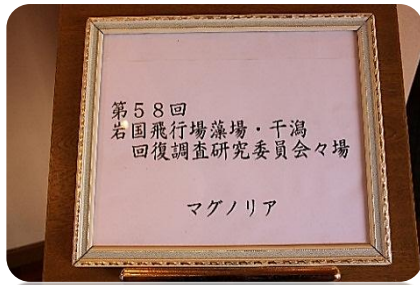 第５８回
岩国飛行場藻場・干潟
回復調査研究委員会々場
マグノリア